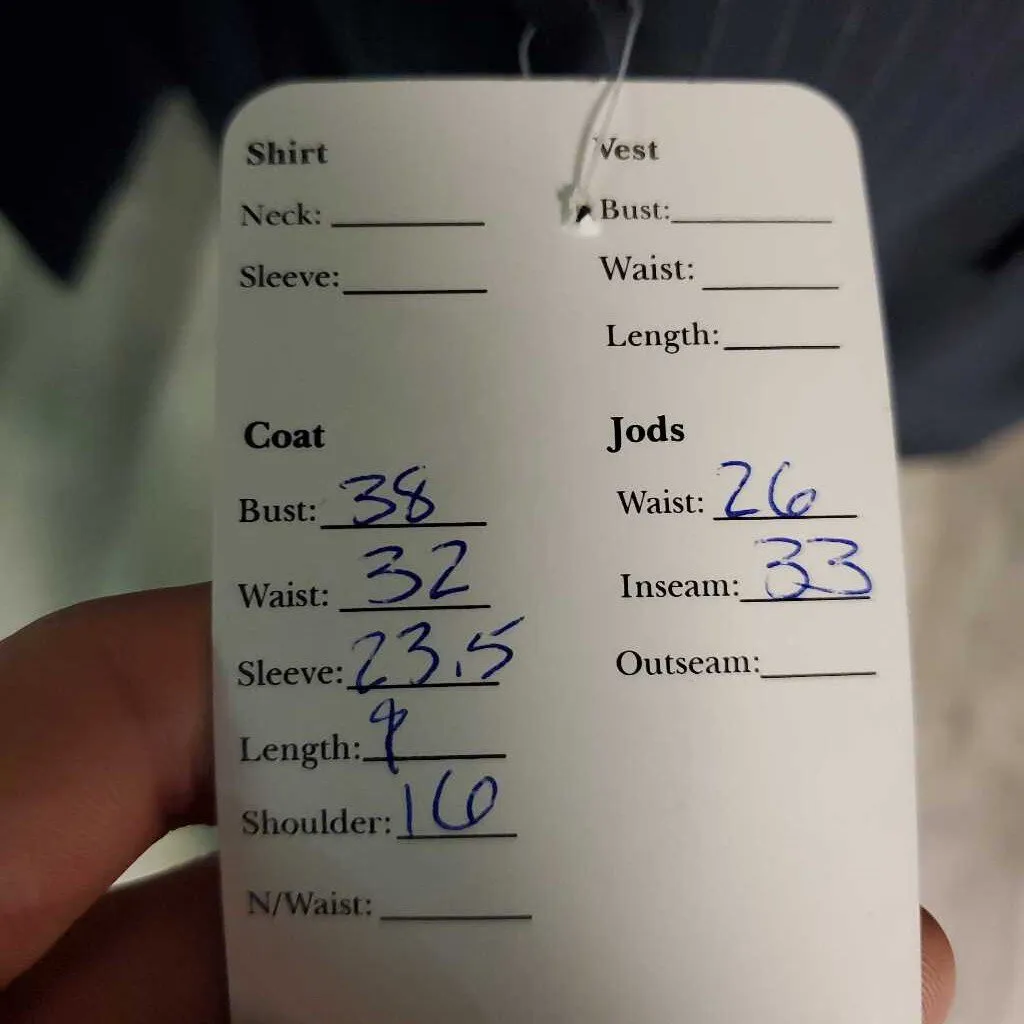 Shirt
Neck:
Sleeve:
Vest
Bust:
Waist:
Length:
Coat
Bust: 38
Waist: 32
Sleeve: 23.5
Length: 9
Shoulder: 16
N/Waist:
Jods
Waist: 26
Inseam: 33
Outseam: